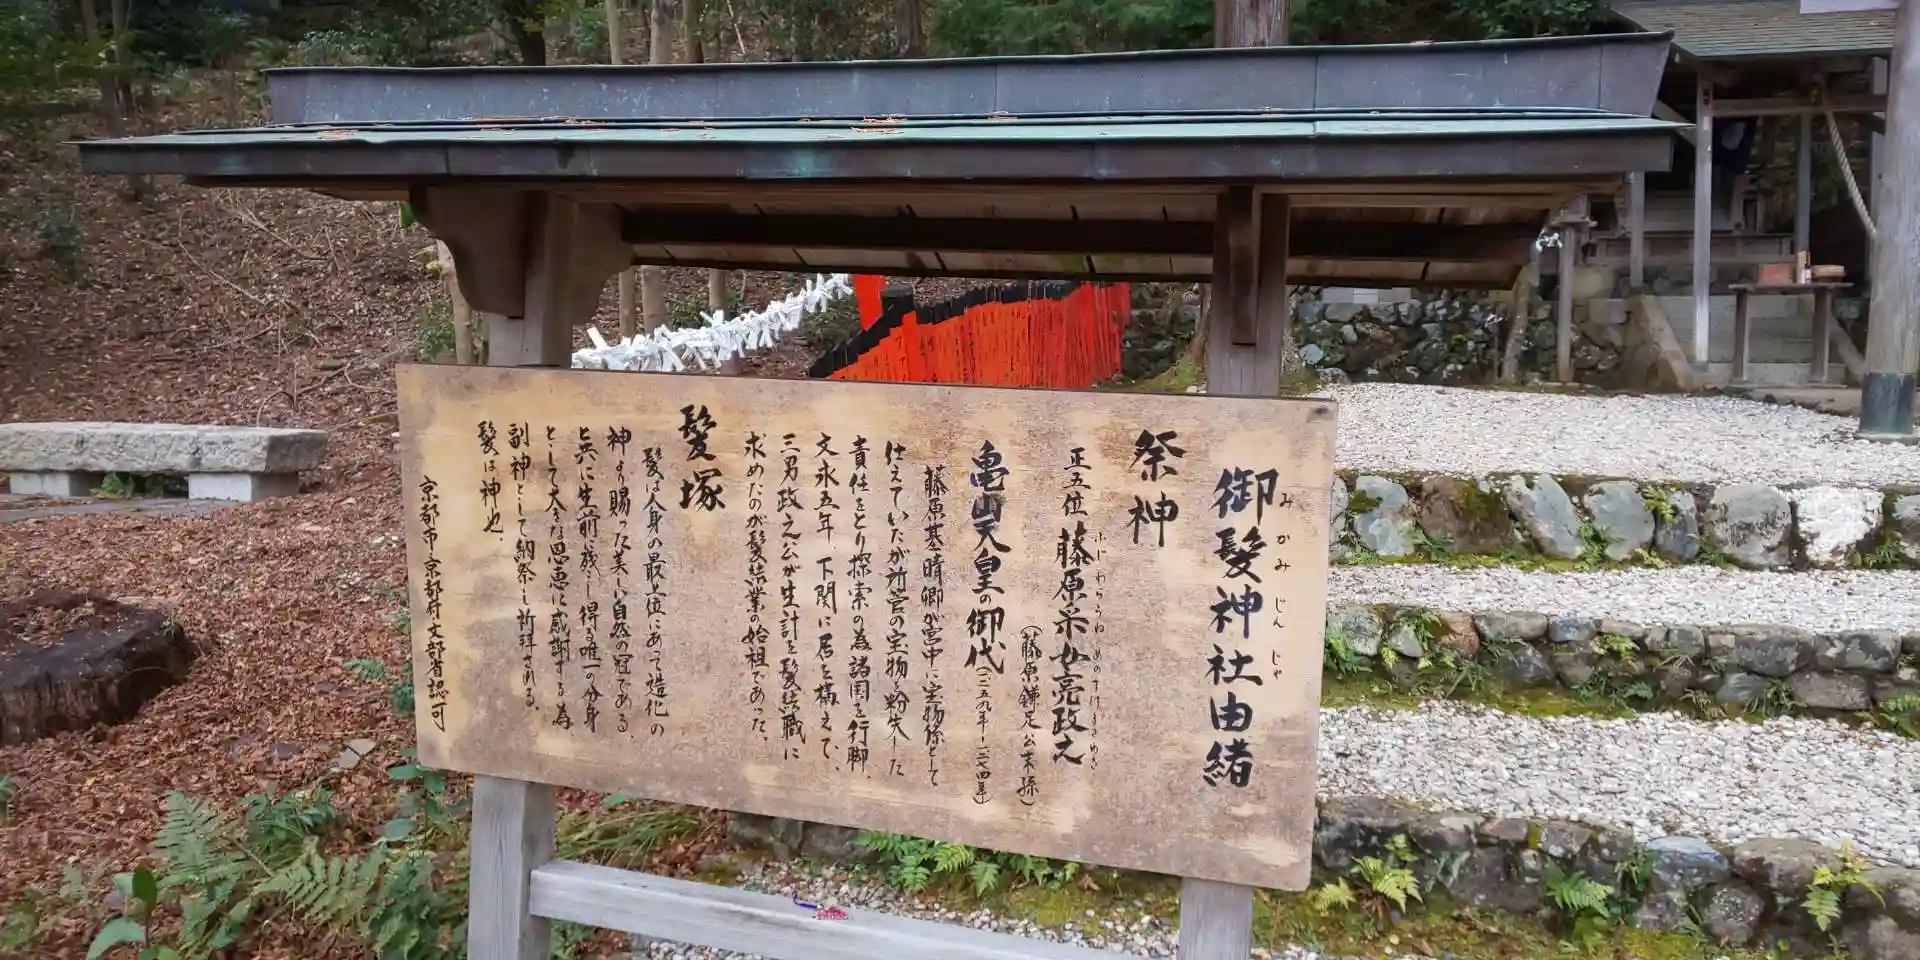 御髪神社由緒
みかみじんじゃ
祭神
正五位 藤原采女亮政之
ふじわらうねめのすけまさゆき
(藤原鎌足公末孫)
亀山天皇の御代(一二五九年~一二七四年)
藤原基晴卿が宮中に宝物係として
仕えていたが所管の宝物を紛失した
責任をとり探索の為諸国を行脚、
文永五年、下関に居を構えて、
三男政之公が生計を髪結職に
求めたのが髪結業の始祖であった。
髪塚
髪は人身の最上位にあって造化の
神より賜った美しい自然の冠である、
と共に生前、残し得る唯一の分身
として大きな恩恵に感謝する為
副神として納祭し祈拝される、
髪は神也
京都市京都府文部省認可